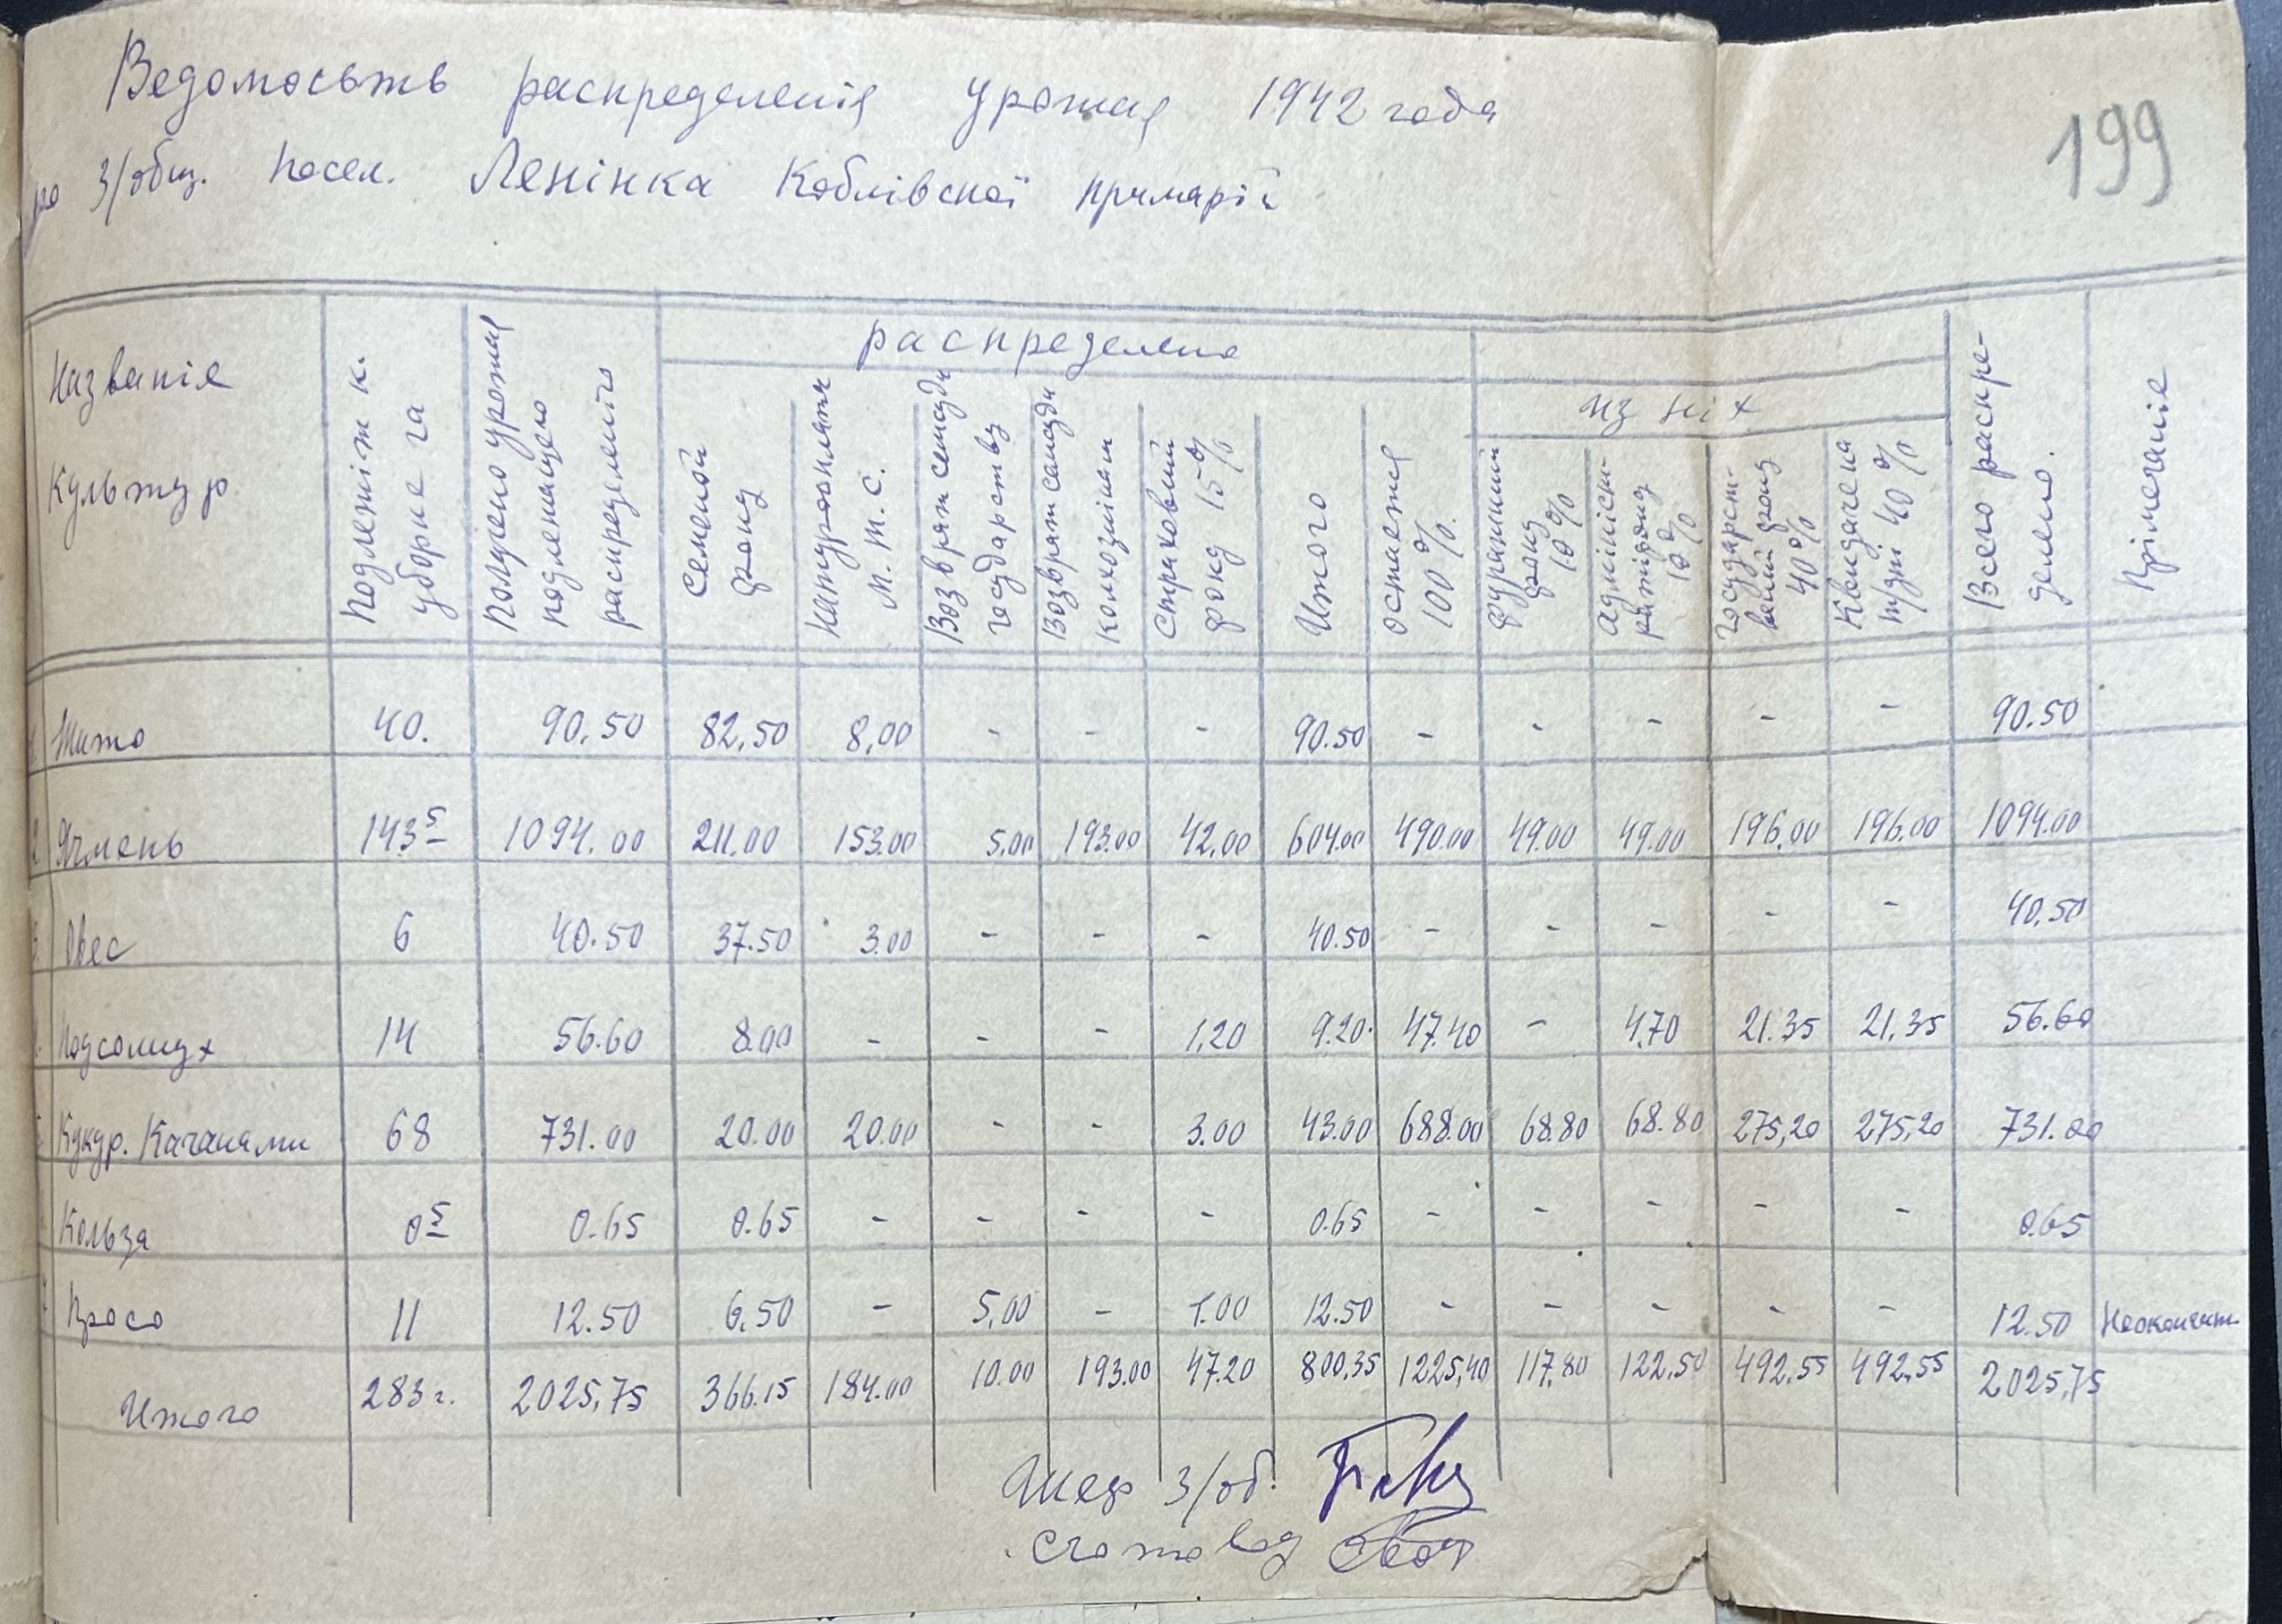 Ведомосьть распределенія урожая 1942 года
по З/общ. посел. Ленінка Коблівскої примарії
199
Названіе культур
Подлежіт к. уборке га
Получено урожая подлежащего распределенію
распределено
Семеной фонд
Натуроплата М.Т.С.
Возврат семсуди государству
Возврат самсуди колхознікам
Страховий фонд 15%
Итого
остается 100%.
из ніх
фуражний фонд 10%
адміністратівфонд 10%
государственій фонд 40%
на трудні 40%
Всего распределено.
Прімечаніе
1. Жито 40. 90.50 82,50 8,00 - - - 90.50 - - - - - 90.50
2. Ячмень 143⁵ 1094.00 211.00 153.00 5.00 193.00 42.00 604.00 490.00 49.00 49.00 196.00 196.00 1094.00
3. Овес 6 40.50 37.50 3.00 - - - 40.50 - - - - - 40.50
Подсолнух 14 56.60 8.00 - - - 1,20 9.20 47.40 - 4.70 21.35 21.35 56.60
Кукур. Качанами 68 731.00 20.00 20.00 - - 3.00 43.00 688.00 68.80 68.80 275,20 275,20 731.00
Кольза 0⁵ 0.65 0.65 - - - - 0.65 - - - - - 0.65
Просо 11 12.50 6.50 - 5,00 - 1.00 12.50 - - - - - 12.50
Итого 283г. 2025,75 366.15 184.00 10.00 193.00 47.20 800.35 1225,40 117,80 122,50 492.55 492.55 2025,75
Шеф З/об.
Счетовод